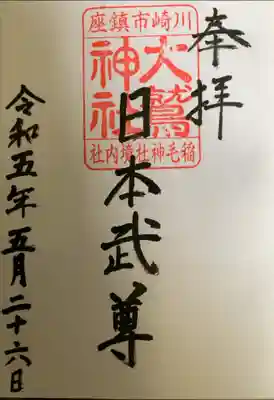 奉拝
川崎市鎮座
大鷲神社
稲毛神社境内社
日本武尊
令和五年五月二十六日